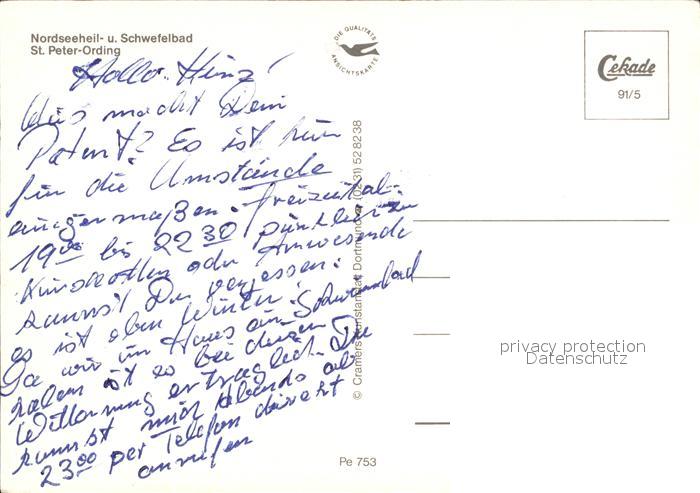 Nordseeheil- u. Schwefelbad
St. Peter-Ording
DIE QUALITÄTS ANSICHTSKARTE
Cekade
91/5
Hallo Heinz!
Was macht Dein
Patent? Es ist hier
für die Umstände
einigermaßen. Freizeit
19 00 bis 22 30 pünktlich
oder Anwesende
kannst Du vergessen:
es ist eben Winter!
Da wir im Haus ein Schwimmbad
haben ist es bei dieser
Witterung erträglich. Du
kannst mich Abends
23 00 per Telefon direkt
anrufen
© Cramers Kunstanstalt Dortmund (0231) 528238
Pe 753
privacy protection
Datenschutz